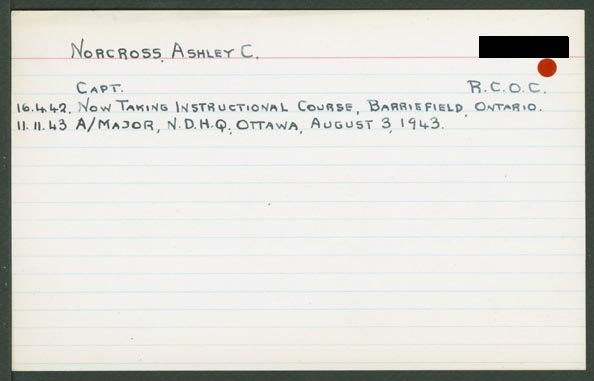 NORCROSS, ASHLEY C.
CAPT. R.C.O.C.
16.4.42. NOW TAKING INSTRUCTIONAL COURSE, BARRIEFIELD, ONTARIO.
11.11.43 A/MAJOR, N.D.H.Q. OTTAWA, AUGUST 3, 1943.